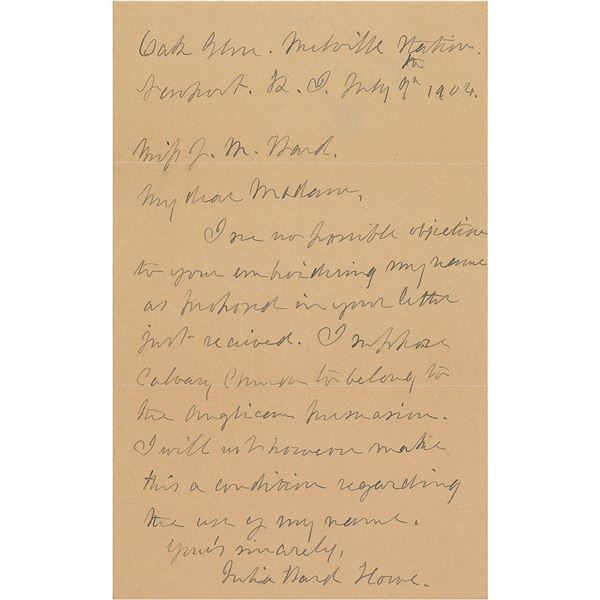 Oak Glen. Melville Station.
Newport. R. I. July 9th 1904.
Miss J. M. Bard.
My dear Madam,
I see no possible objection
to your embroidering my name
as proposed in your letter
just received. I suppose
Calvary Church to belong to
the Anglican persuasion.
I will not however make
this a condition regarding
the use of my name.
Yours sincerely,
Julia Ward Howe.